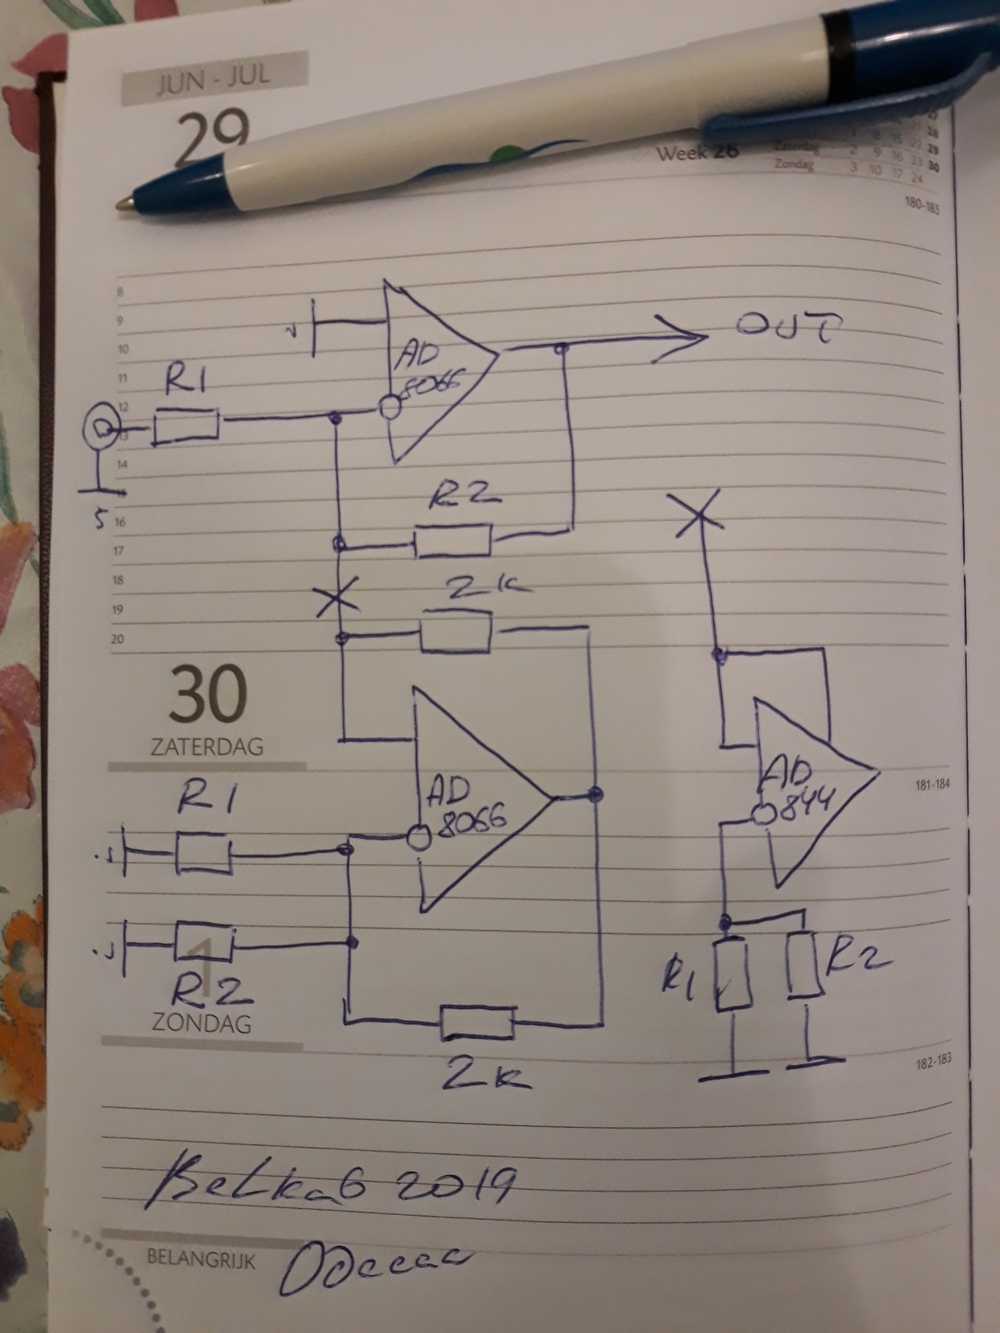 JUN - JUL
29
Week 26
Zaterdag 2 9 16 23 30
Zondag 3 10 17 24
180-185
8
9
10
11
12
13
14
16
17
18
19
20
OUT
AD
8066
R1
R2
2K
30
ZATERDAG
181-184
R1
AD
8066
AD
844
R1
R2
1
R2
ZONDAG
2K
182-183
BeLka6 2019
BELANGRIJK
Одесса